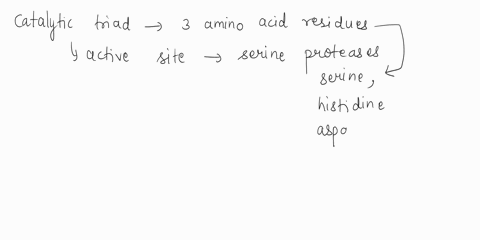 Catalytic triad → 3 amino acid residues
↳ active site → serine proteases
serine,
histidine
aspo